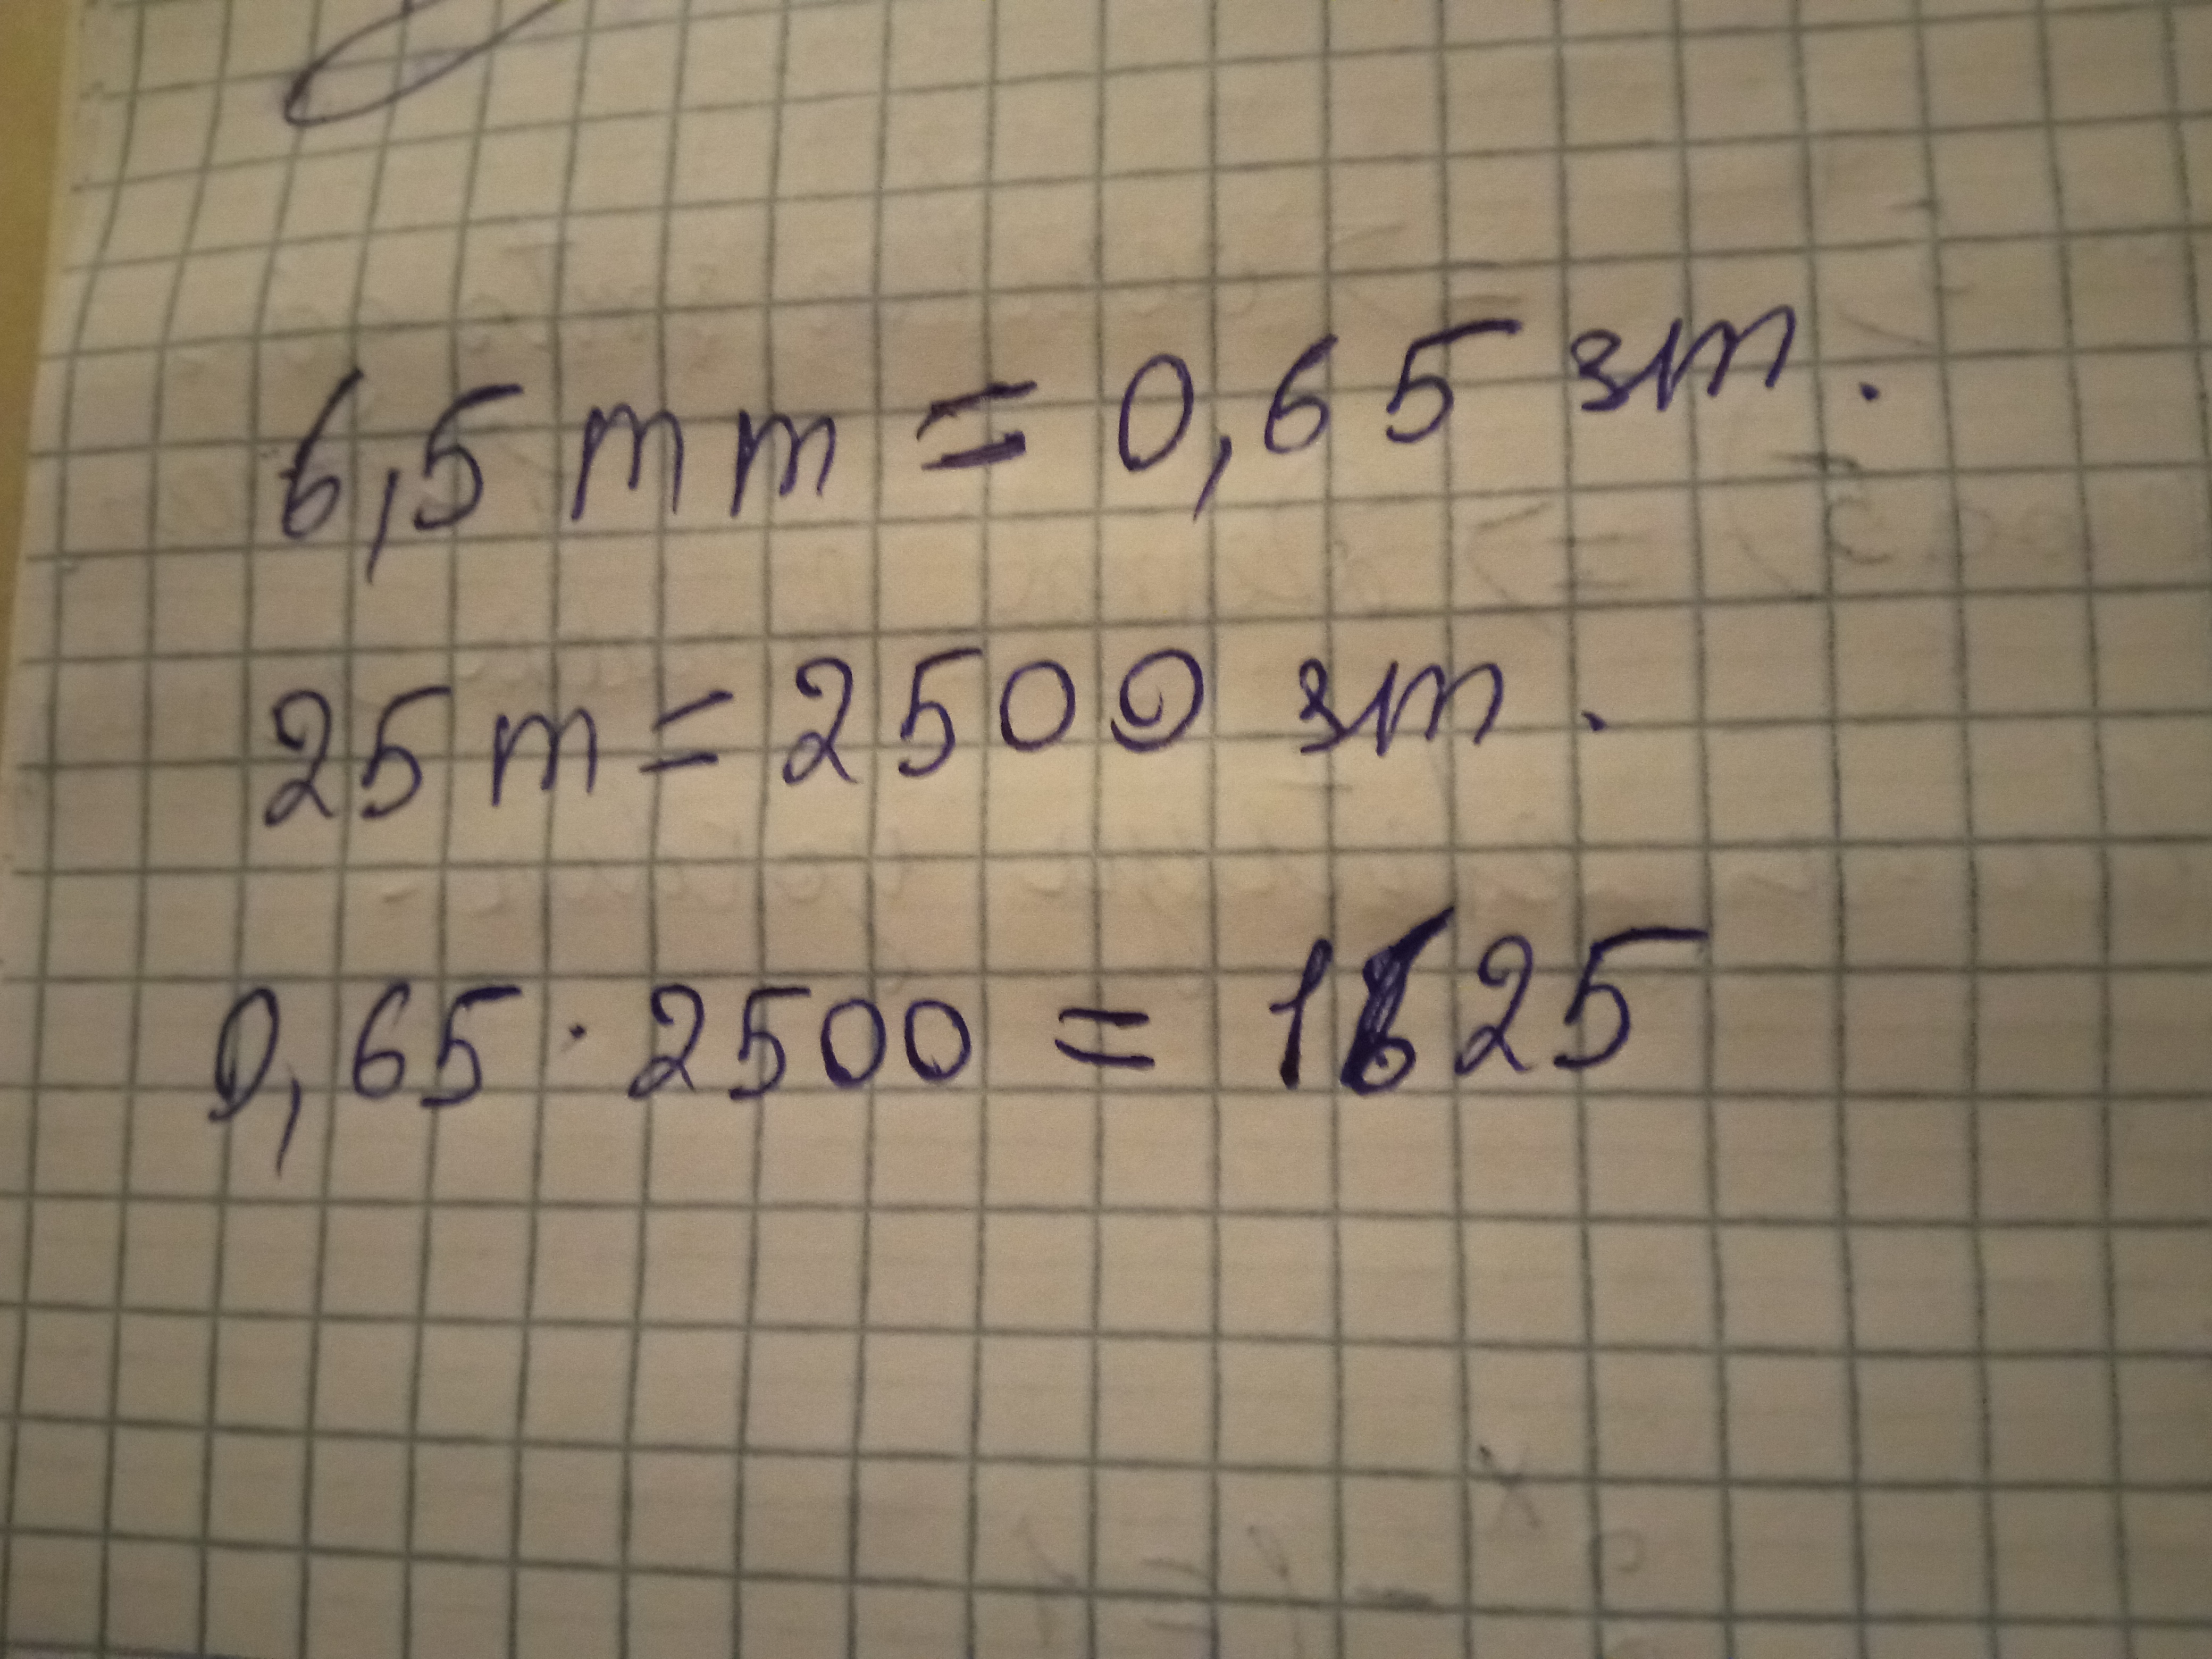 6,5 mm = 0,65 зm.
25 m = 2500 зm.
0,65 · 2500 = 1625